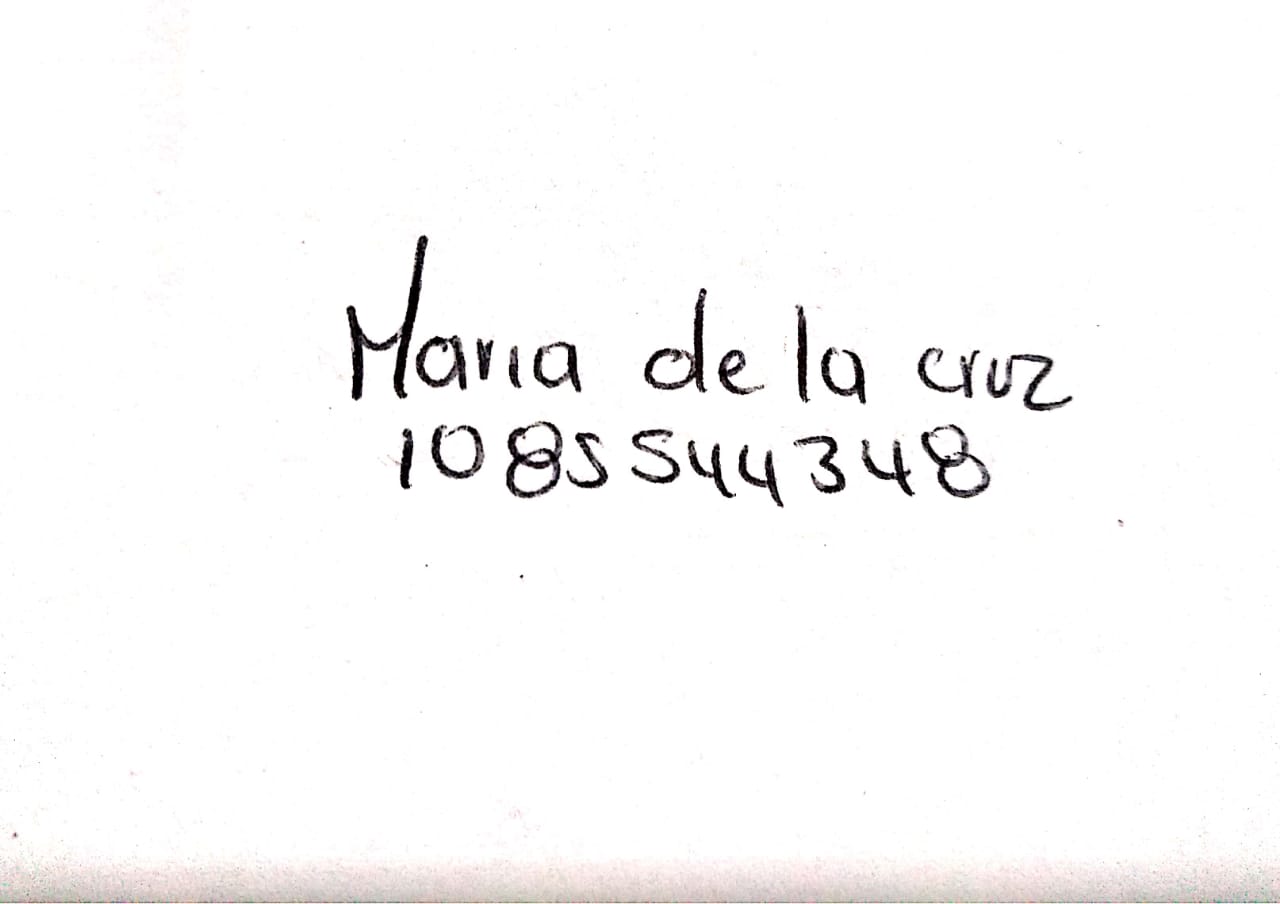 Maria de la cruz
1085544348